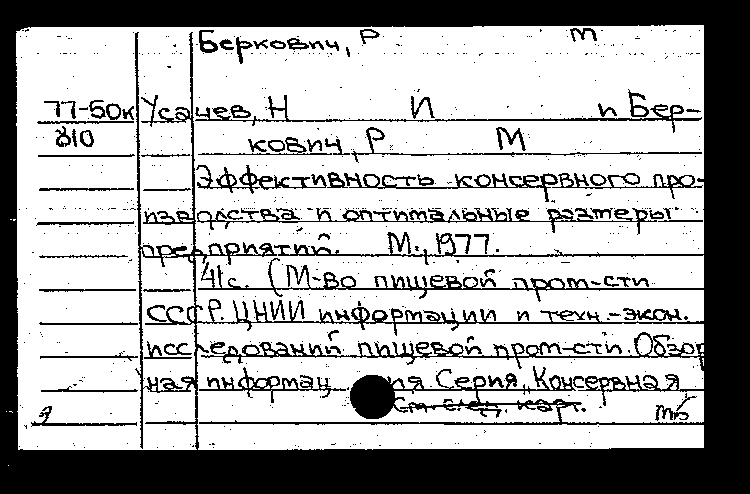 Беркович, Р М
77-50к Усачев, Н И и Бер-
810 кович, Р М
Эффективность консервного про-
изводства и оптимальные размеры
предприятий. М., 1977.
41с. (М-во пищевой пром-сти
СССР. ЦНИИ информации и техн.-экон.
исследований пищевой пром-сти. Обзор
ная информац ия Серия, Консервная
См. след. карт. тб